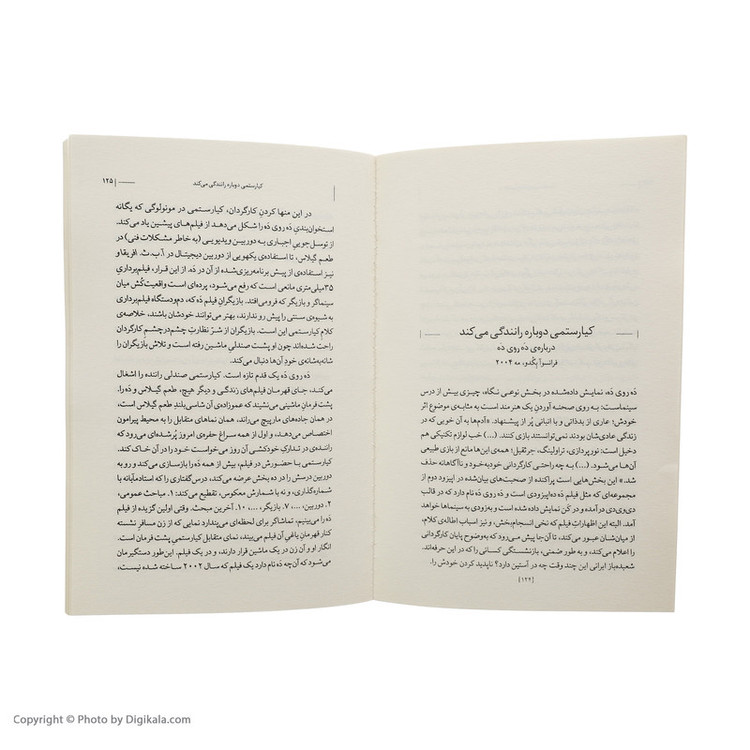 کیارستمی دوباره رانندگی می‌کند
درباره‌ی دَه روی دَه
فرانسوآ بِگُدو، مه ۲۰۰۴
دَه روی دَه، نمایش داده‌شده در بخش نوعی نگاه، چیزی بیش از درس
سینماست: به روی صحنه آوردنِ یک هنرمند است به مثابه‌ی موضوع اثر
خودش؛ عاری از بدذاتی و با انبانی پُر از پیشنهاد. «آدم‌ها به آن خوبی که در
زندگی عادی‌شان بودند نمی‌توانستند بازی کنند. (...) خب لوازم تکنیکی هم
دخیل است: نورپردازی، تراولینگ، جرثقیل؛ همه‌ی این‌ها مانع از بازی طبیعی
آن‌ها می‌شود. (...) به چه راحتی کارگردانی خودبه‌خود و ناآگاهانه حذف
شد.» این بخش‌هایی است پراکنده از صحبت‌های بیان‌شده در اپیزود دوم از
مجموعه‌ای که مثل فیلم دَه ده‌اپیزودی است و دَه روی دَه نام دارد که در قالب
دی‌وی‌دی درآمده و در کَن نمایش داده شده است و به‌زودی به سینماها خواهد
آمد. البته این اظهارات فیلم که نخی انسجام‌بخش، و نیز اسباب اطاله‌ی کلام،
از میان‌شان عبور می‌کند، تا آن‌جا پیش می‌رود که به‌وضوح پایان کارگردانی
را اعلام می‌کند، و به طور ضمنی، بازنشستگی کسانی را که در این حرفه‌اند.
شعبده‌باز ایرانی این چند وقت چه در آستین دارد؟ ناپدید کردن خودش را.
[۱۲۴]
کیارستمی دوباره رانندگی می‌کند
۱۲۵
در این منها کردنِ کارگردان، کیارستمی در مونولوگی که یگانه
استخوان‌بندیِ دَه روی دَه را شکل می‌دهد از فیلم‌های پیشین یاد می‌کند.
از توسل‌جوییِ اجباری به دوربین ویدیویی (به خاطر مشکلات فنی) در
طعم گیلاس، تا استفاده‌ی یکهویی از دوربین دیجیتال در اِ.بِ.ث. افریقا و
نیز استفاده‌ی از پیش برنامه‌ریزی‌شده از آن در دَه. از این قرار، فیلم‌برداریِ
۳۵میلی‌متری مانعی است که رفع می‌شود، پرده‌ای است واقعیت‌کُش میان
سینماگر و بازیگر که فرومی‌افتد. بازیگرانِ فیلم دَه که، دم‌ودستگاه فیلم‌برداری
به شیوه‌ی سنتی را پیش رو ندارند، بهتر می‌توانند خودشان باشند، خلاصه‌ی
کلام کیارستمی این است. بازیگران از شرّ نظارتِ چشم‌درچشمِ کارگردان
راحت شده‌اند چون او پشت صندلیِ ماشین رفته است و تلاش بازیگران را
شانه‌به‌شانه‌ی خودِ آن‌ها دنبال می‌کند.
دَه روی دَه یک قدم تازه است. کیارستمی صندلی راننده را اشغال
می‌کند، جای قهرمان فیلم‌های زندگی و دیگر هیچ، طعم گیلاس و دَه را.
پشت فرمانِ ماشینی می‌نشیند که عموزاده‌ی آن شاسی‌بلندِ طعم گیلاس است،
در همان جاده‌های مارپیچ می‌راند، همان نماهای متقابل را به محیط پیرامون
اختصاص می‌دهد، و اول از همه سراغ حفره‌ی امروز پُرشده‌ای می‌رود که
راننده‌ی در تدارکِ خودکشی آن روز می‌خواست خود را در آن خاک کند.
کیارستمی با حضورش در فیلم، بیش از همه دَه را بازسازی می‌کند و رو به
دوربین درسش را در ده بخش عرضه می‌کند، درس‌گفتاری را که استادمآبانه با
شماره‌گذاری، و نه با شمارش معکوس، تقطیع می‌کند: ۱. مباحث عمومی،
۲. دوربین، ...، ۷. بازیگر، ...، ۱۰. آخرین مبحث. وقتی اولین گزیده از فیلم
دَه را می‌بینیم، تماشاگر برای لحظه‌ای می‌پندارد نمایی که از زنِ مسافرِ نشسته
کنار قهرمانِ یاغی آن فیلم می‌بیند، نمای متقابل کیارستمی پشت فرمان است.
انگار او و آن زن در یک ماشین قرار دارند، و در یک فیلم. این‌طور دستگیرمان
می‌شود که آن‌چه دَه نام دارد یک فیلم که سال ۲۰۰۲ ساخته شده نیست،
Copyright © Photo by Digikala.com